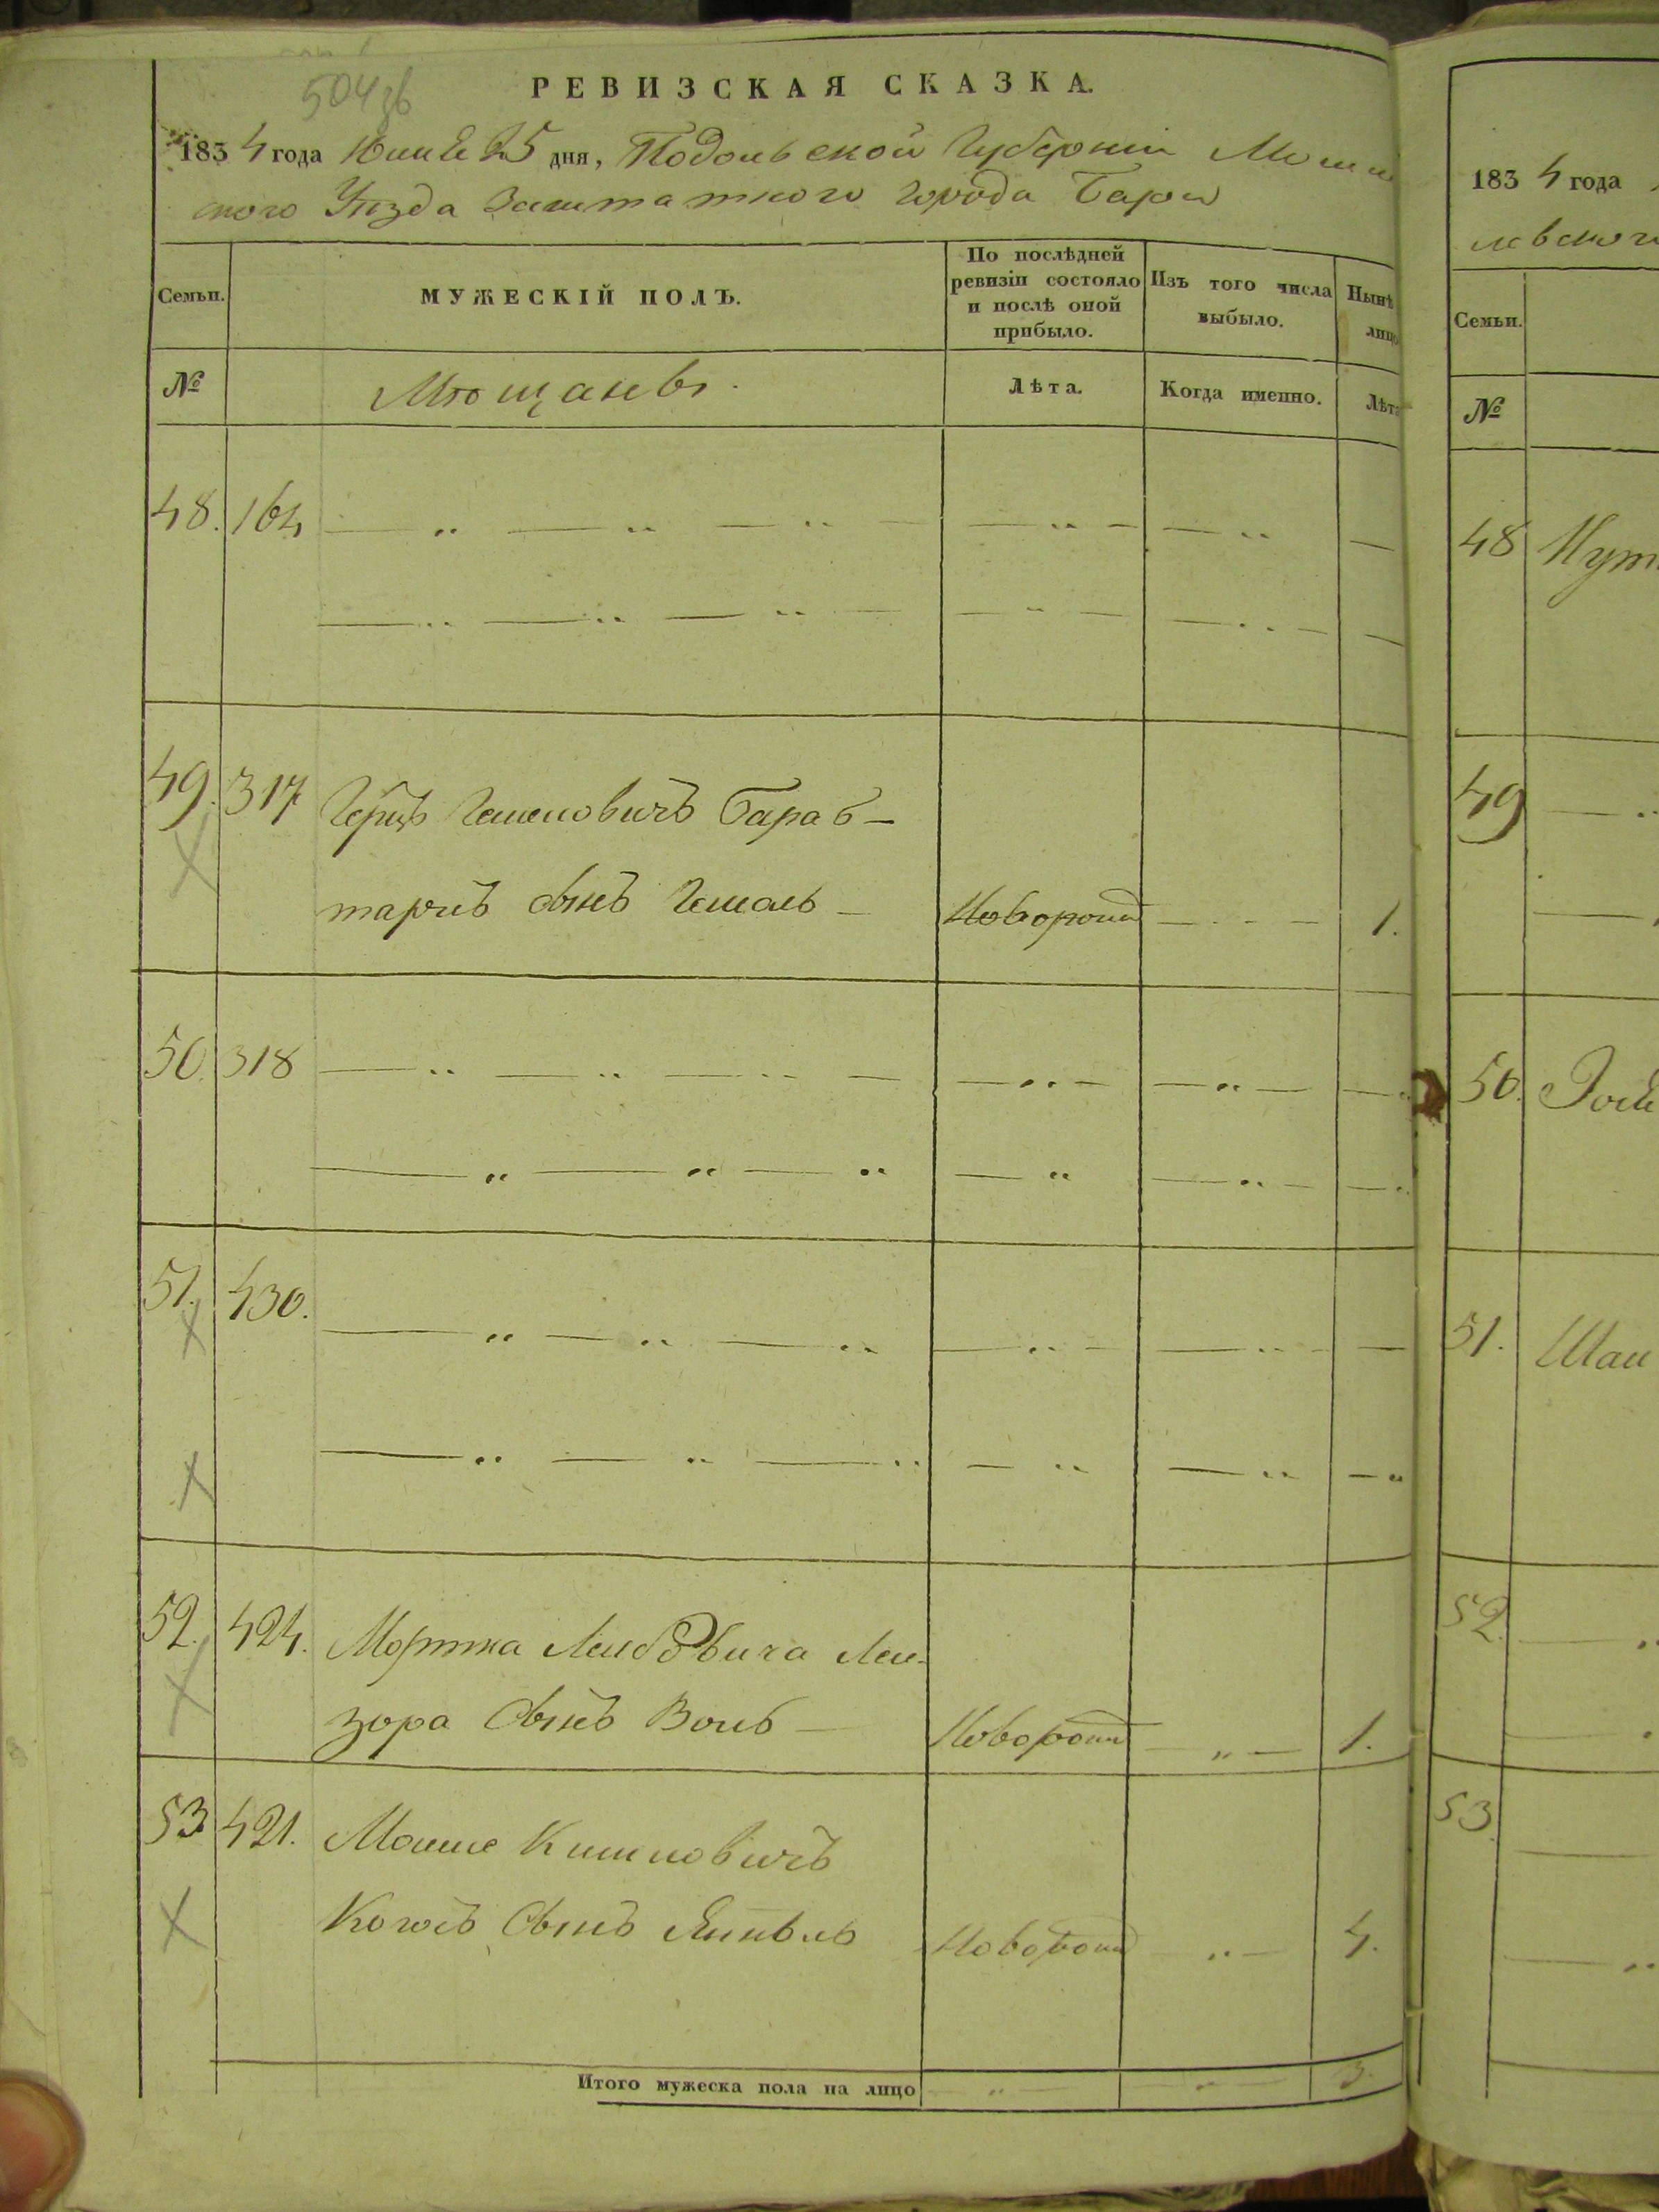 504 зв
РЕВИЗСКАЯ СКАЗКА.
1834 года Июня 25 дня, Подольской Губернiи Моги
ского Уѣзда Заштатного города Бара
Семьи.
МУЖЕСКIЙ ПОЛЪ.
По послѣдней ревизiи состояло и послѣ оной прибыло.
Изъ того числа выбыло.
Нынѣ лицо
№
Мѣщанъ.
Лѣта.
Когда именно.
Лѣта
48. 164
49. 317 Герцъ Гешеловичъ Бараб-
тарчъ сынъ Гешель Новорожд 1.
50. 318
51. 430.
52. 424. Мортка Лейбовича Лей-
зора Сынъ Волъ Новорожд 1.
53 421. Мошке
Когосъ Сынъ Янкель Новорожд 4.
Итого мужеска пола на лицо 3.
1834 года
левского
Семьи.
№
48
49
50.
51.
52.
53.